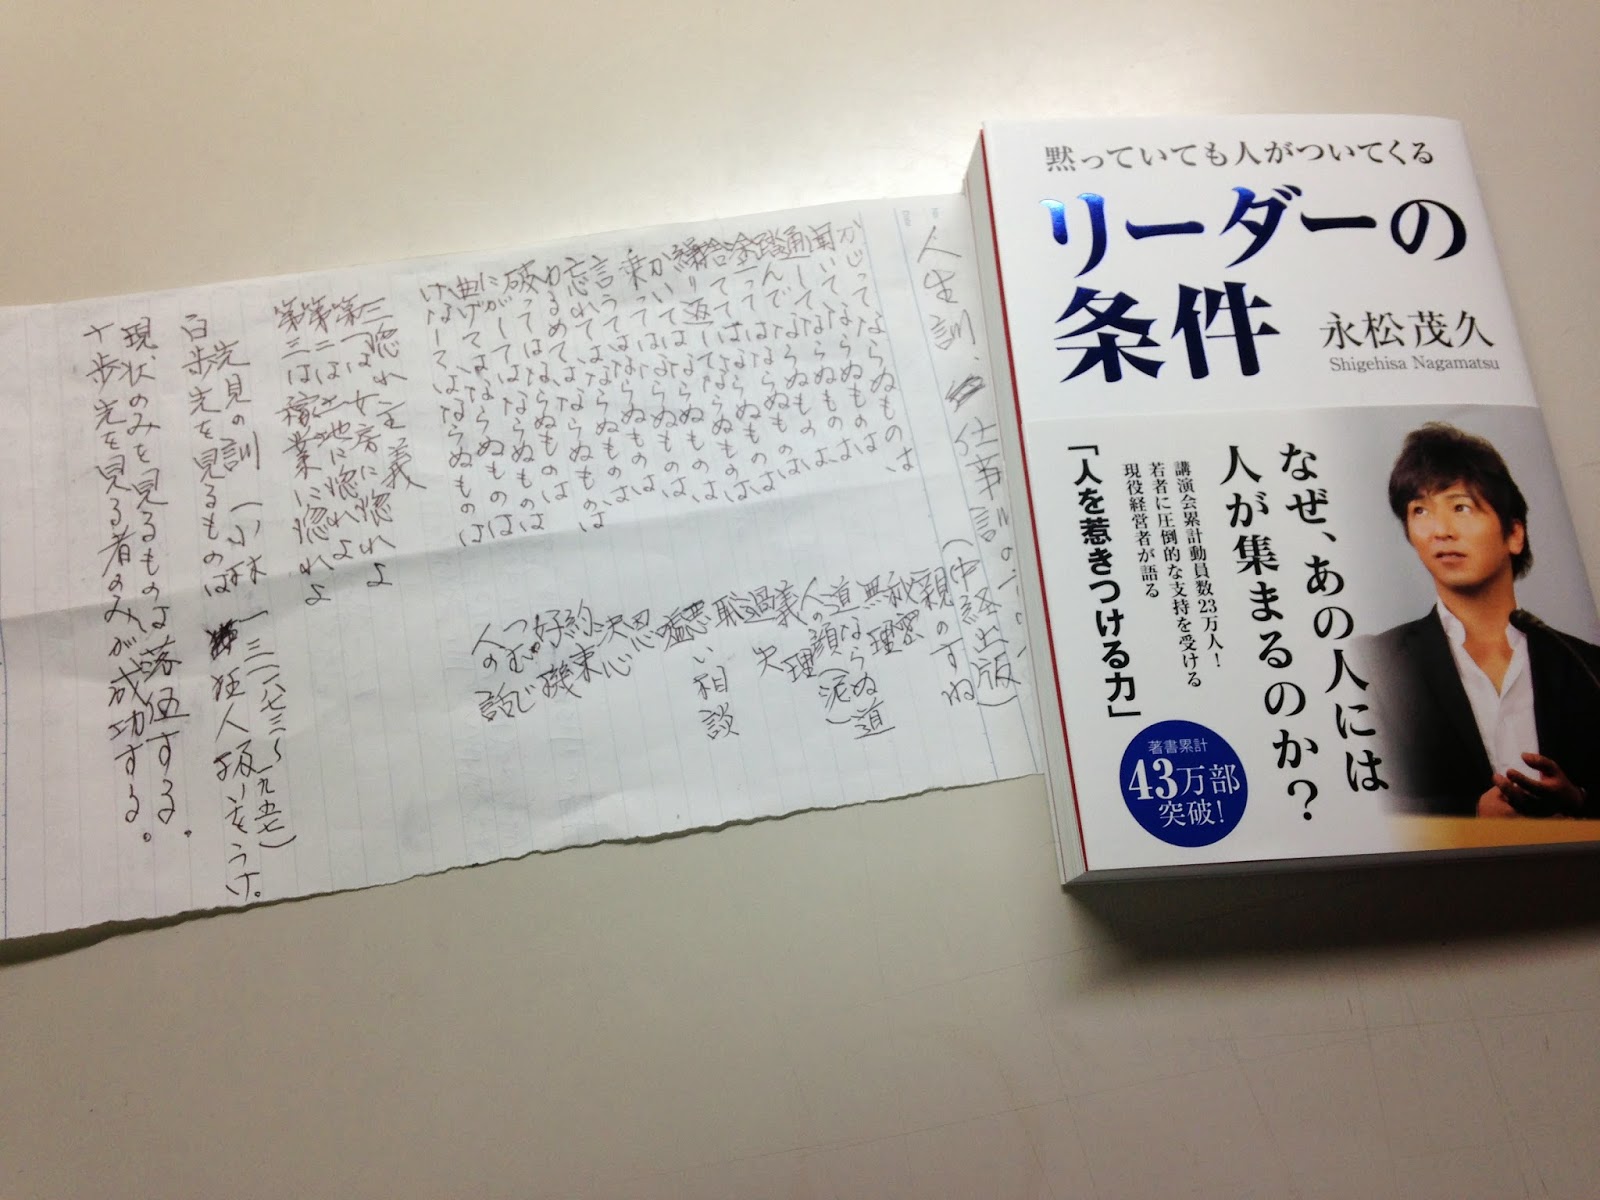 黙っていても人がついてくる
リーダーの
条件
永松茂久
Shigehisa Nagamatsu
なぜ、あの人には
人が集まるのか?
講演会累計動員数23万人!
若者に圧倒的な支持を受ける
現役経営者が語る
「人を惹きつける力」
著書累計
43万部
突破!
人生訓、仕事訓の (中経出版)
かじってならぬものは 親のすね
聞いてならぬものは 秘密
通してならぬものは 無理
踏んでならぬものは 道ならぬ道
塗ってはならぬものは 人の顔(泥)
捨ててはならぬものは 義理
繰り返してはならぬものは 過失
かいてはならぬものは 恥
乗ってはならぬものは 悪い相談
言うてはならぬものは 嘘
忘れてはならぬものは 恩
ゆるめてはならぬものは 決心
破ってはならぬものは 約束
にがしてはならぬものは 好機
曲げてはならぬものは つむじ
けなしてはならぬものは 人の話
三惚れ主義
第一は女房に惚れよ
第二は土地に惚れよ
第三は稼業に惚れよ
先見の訓 (小林一三 一八七三〜一九五七)
百歩先を見るものは 狂人扱いをうけ。
現状のみを見るものは落伍する。
十歩先を見る者のみが成功する。